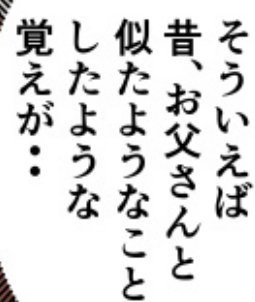 そういえば
昔、お父さんと
似たようなこと
したような
覚えが・・